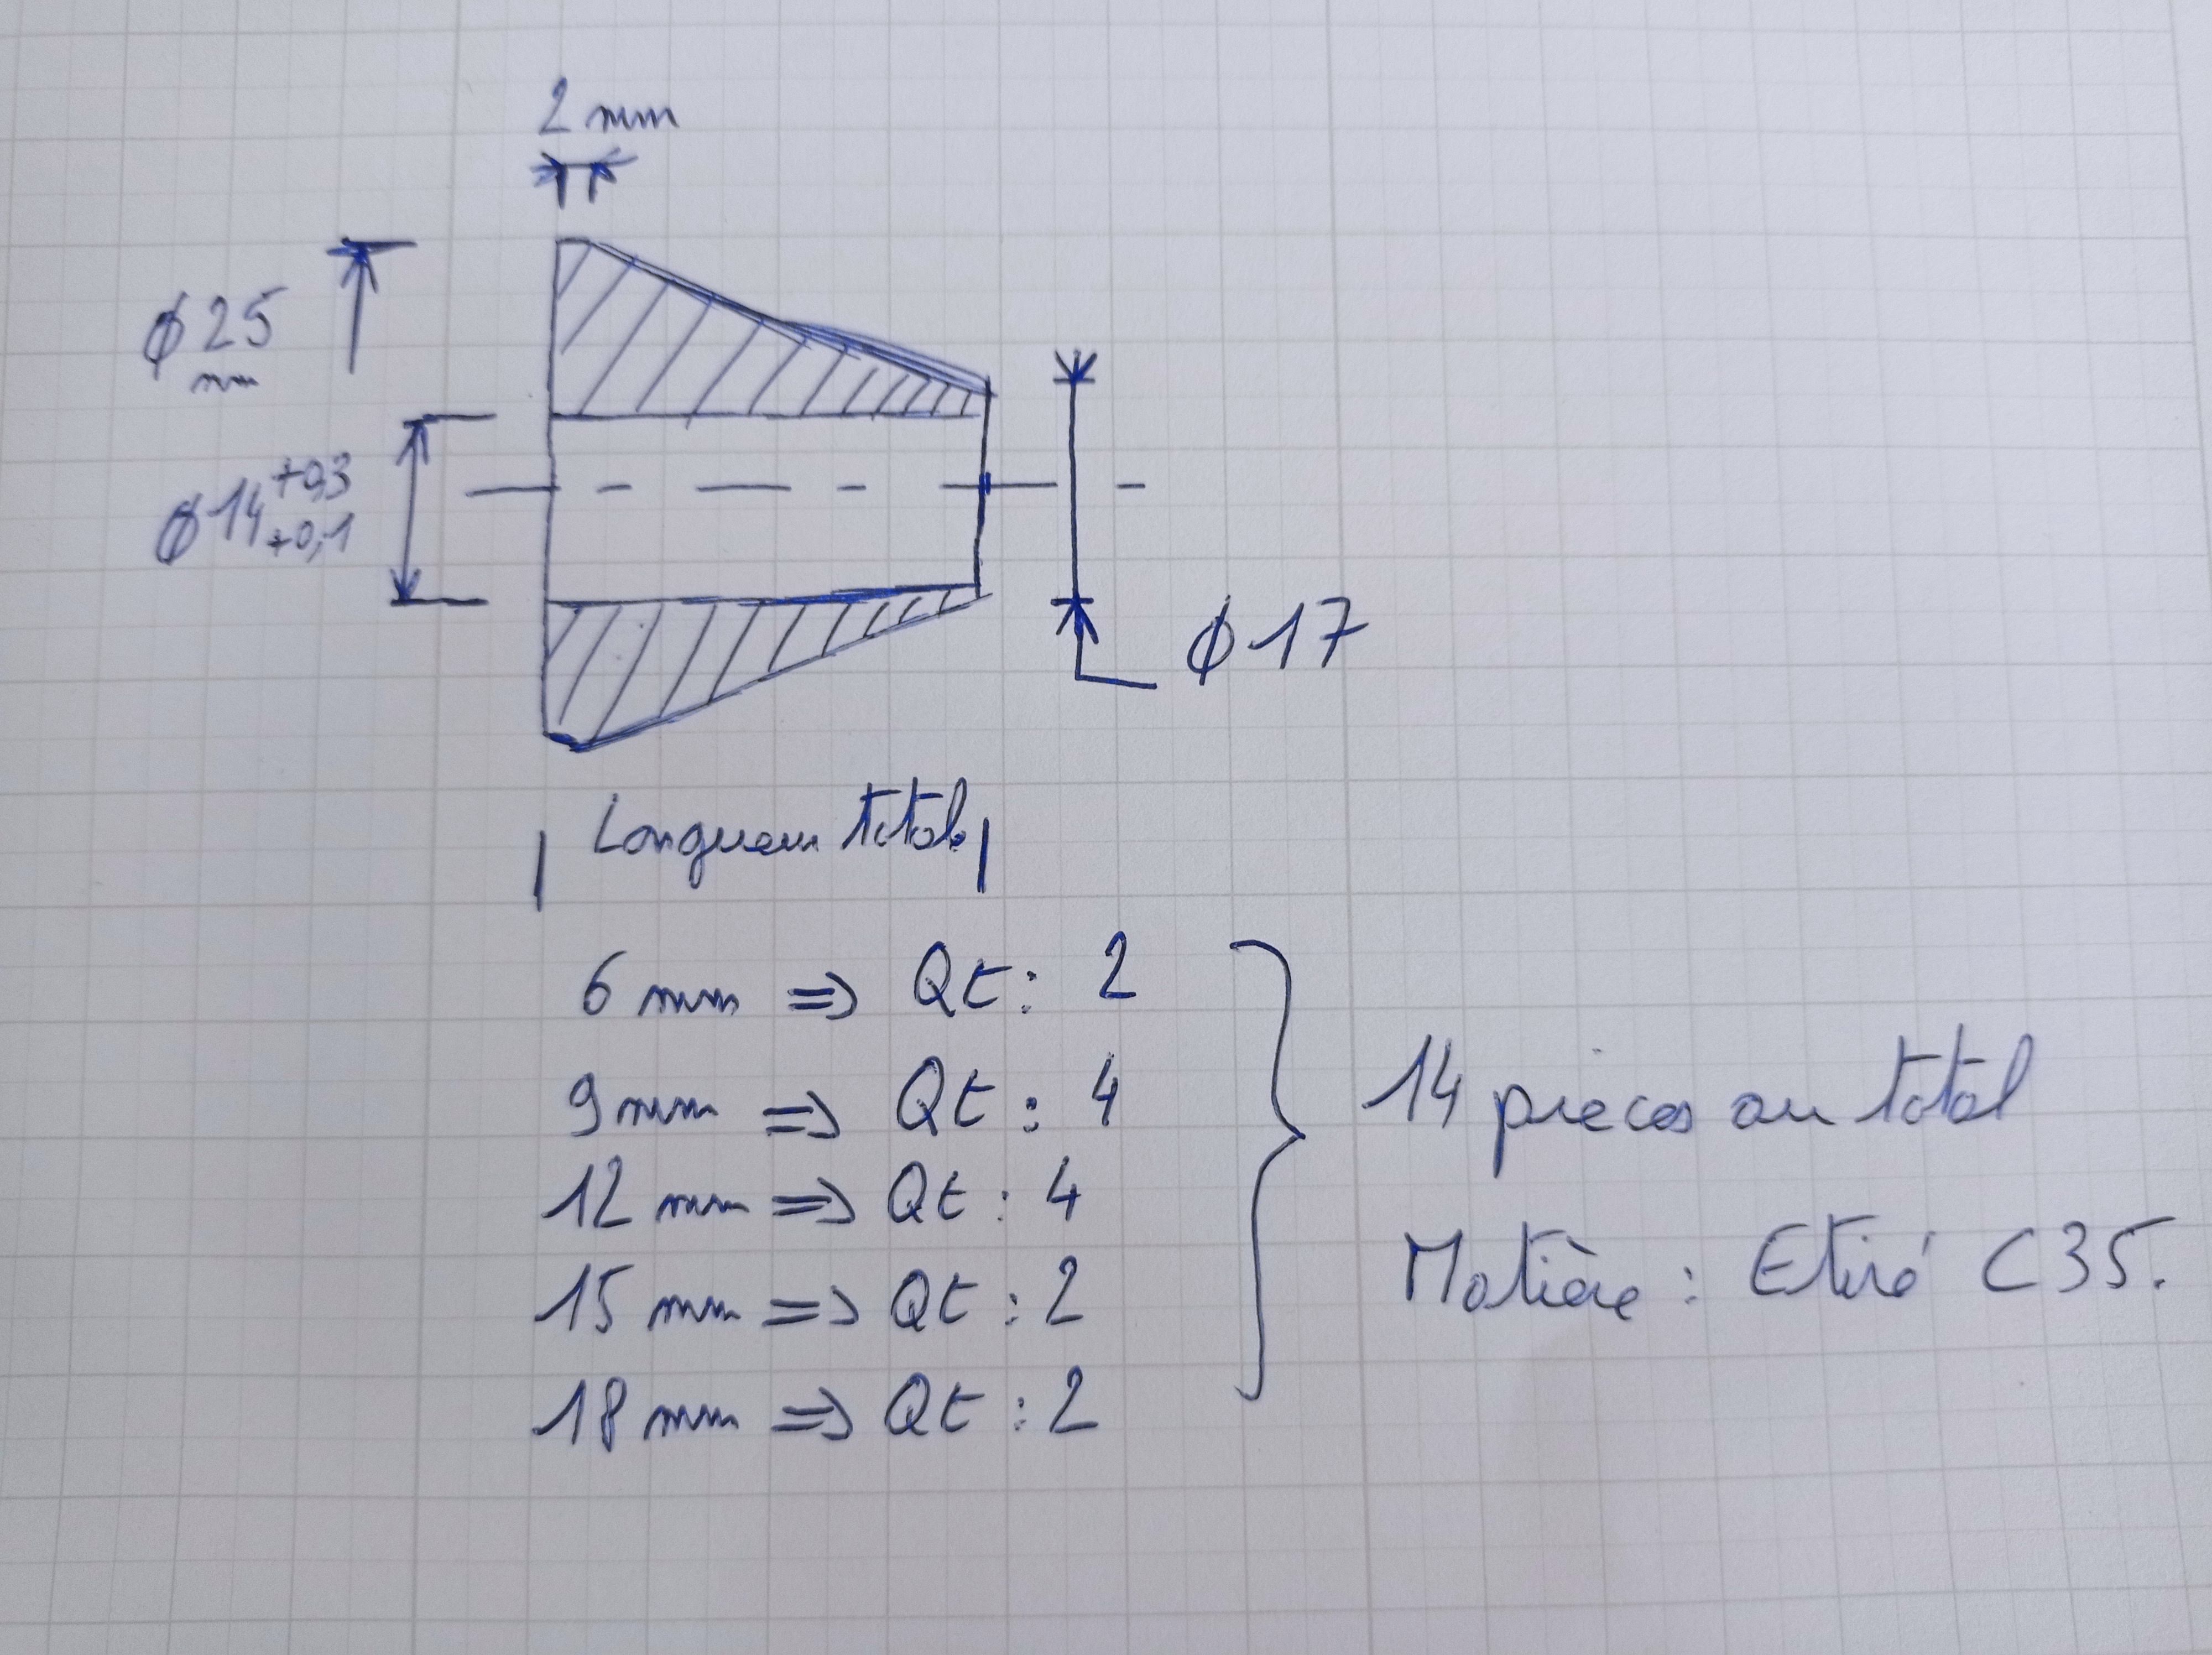 2 mm
ϕ 25
mm
ϕ 14 +0,3
+0,1
ϕ 17
Longueur totale
6 mm => Qt : 2
9 mm => Qt : 4
12 mm => Qt : 4
15 mm => Qt : 2
18 mm => Qt : 2
14 pièces au total
Matière : Etiré C35.